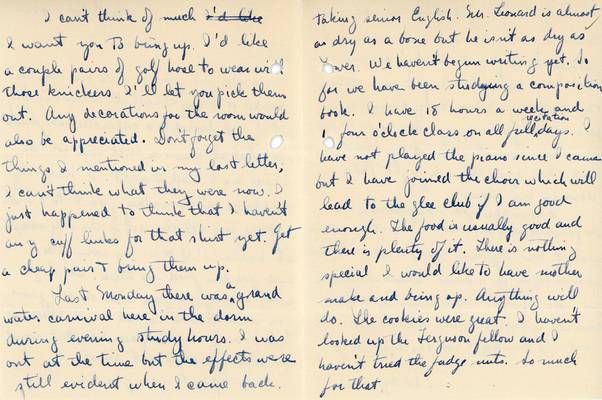 I can't think of much I'd like
I want you to bring up. I'd like
a couple pairs of golf hose to wear with
those knickers. I'll let you pick them
out. Any decorations for the room would
also be appreciated. Don't forget the
things I mentioned in my last letter,
I can't think what they were now. I
just happened to think that I haven't
any cuff links for that shirt yet. Get
a cheap pair & bring them up.
Last Monday there was a grand
water carnival here in the dorm
during evening study hours. I was
out at the time but the effects were
still evident when I came back.
taking senior English. Mr. Leonard is almost
as dry as a bone but he isn't as dry as
We haven't begun writing yet. So
far we have been studying a composition
book. I have 18 hours a week and
1 four o'clock class on all full recitation days. I
have not played the piano since I came
but I have joined the choir which will
lead to the glee club if I am good
enough. The food is usually good and
there is plenty of it. There is nothing
special I would like to have mother
make and bring up. Anything will
do. The cookies were great. I haven't
looked up the Ferguson fellow and I
haven't tried the fudge nuts. So much
for that.